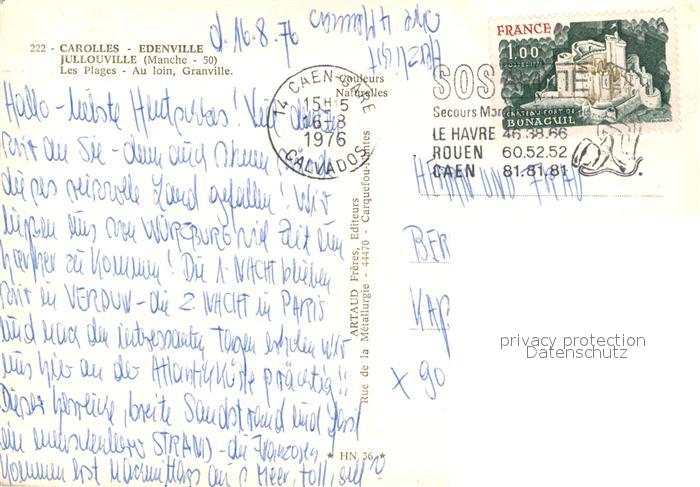 d. 16.8.76
222 - CAROLLES - EDENVILLE
JULLOUVILLE (Manche - 50)
Les Plages - Au loin, Granville.
Couleurs
Naturelles
Hallo - liebste
Sie - denn auch Ihnen
dieses reizvolle Land gefallen! Wir
ließen uns von WÜRZBURG viel Zeit um
hierher zu kommen! Die 1. NACHT blieben
wir in VERDUN - die 2. NACHT in PARIS
und nach den interessanten Tagen erholen wir
uns hier an der Atlantikküste prächtig!!
Dieser herrliche, breite Sandstrand und fast
ein menschenleerer STRAND - die Franzosen
kommen erst Nachmittags ans Meer, toll,
ARTAUD Frères, Editeurs
Rue de la Métallurgie - 44470 - Carquefou-Nantes
* HN 56 *
14 CAEN GARE
15H-5
16-8
1976
CALVADOS
SOS
Secours
LE HAVRE 46.38.66
ROUEN 60.52.52
CAEN 81.81.81
FRANCE
1,00
POSTES
CHÂTEAU FORT DE
BONAGUIL
HERRN UND FRAU
BER
KAP
X 90
privacy protection
Datenschutz